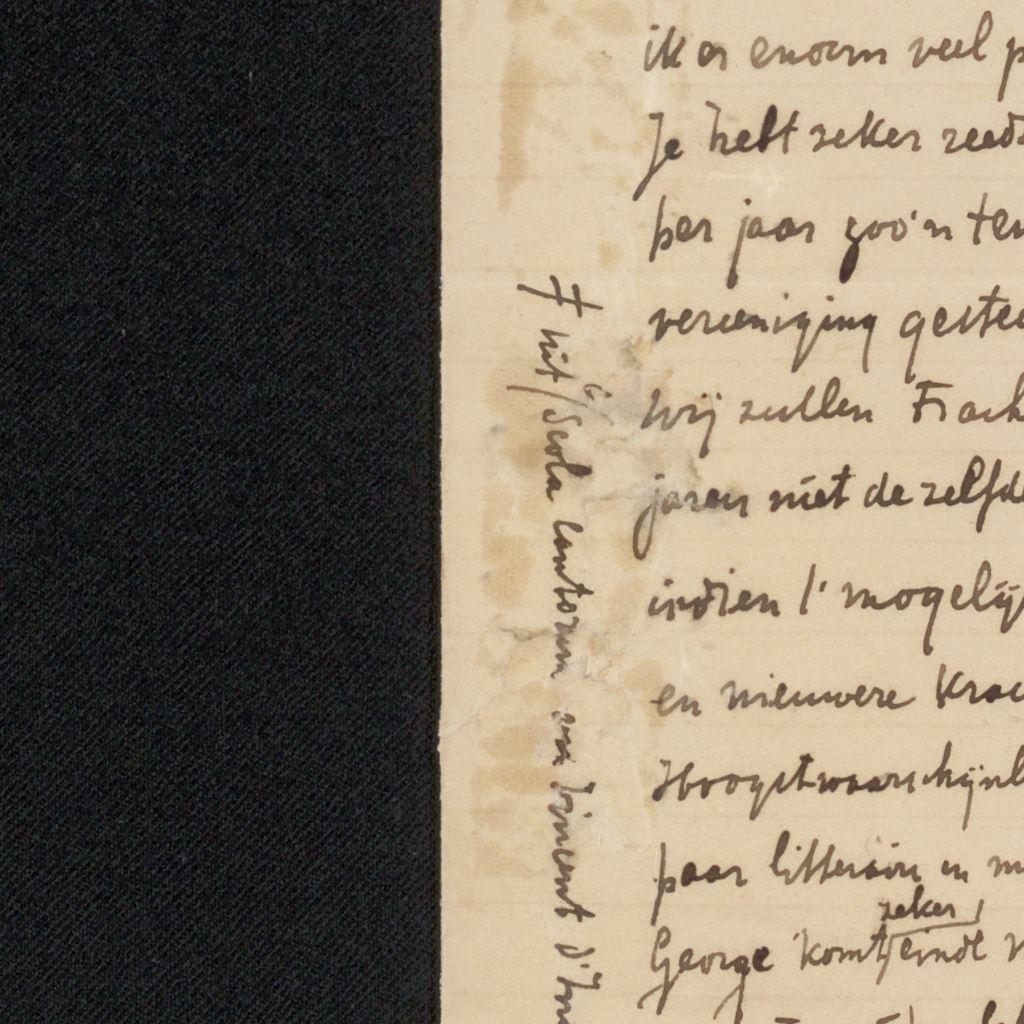 ik er enorm veel p
Je hebt zeker reeds
per jaar zoo'n ten
vereeniging gestee
Wij zullen Frack
jaren niet de zelfde
indien 't mogelijk
en nieuwere Krac
Hoogstwaarschijnl
paar litterair en m
zeker
George komt einde
uit Scola Cantorum van Vincent d'In